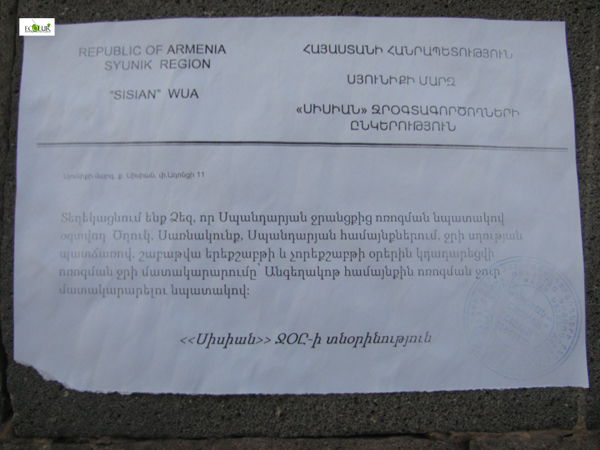 ECOLUR
REPUBLIC OF ARMENIA
SYUNIK REGION
"SISIAN" WUA
ՀԱՅԱՍՏԱՆԻ ՀԱՆՐԱՊԵՏՈՒԹՅՈՒՆ
ՍՅՈՒՆԻՔԻ ՄԱՐԶ
«ՍԻՍԻԱՆ» ՋՐՕԳՏԱԳՈՐԾՈՂՆԵՐԻ
ԸՆԿԵՐՈՒԹՅՈՒՆ
Սյունիքի մարզ, ք. Սիսիան, 11
Տեղեկացնում ենք Ձեզ, որ Սպանդարյան ջրանցքից ոռոգման նպատակով
օգտվող Ծղուկ, Սառնակունք, Սպանդարյան համայնքներում, ջրի սղության
պատճառով, շաբաթվա երեքշաբթի և չորեքշաբթի օրերին կդադարեցվի
ոռոգման ջրի մատակարարումը՝ Անգեղակոթ համայնքին ոռոգման ջուր
մատակարարելու նպատակով:
<<Սիսիան>> ՋՕԸ-ի տնօրինություն